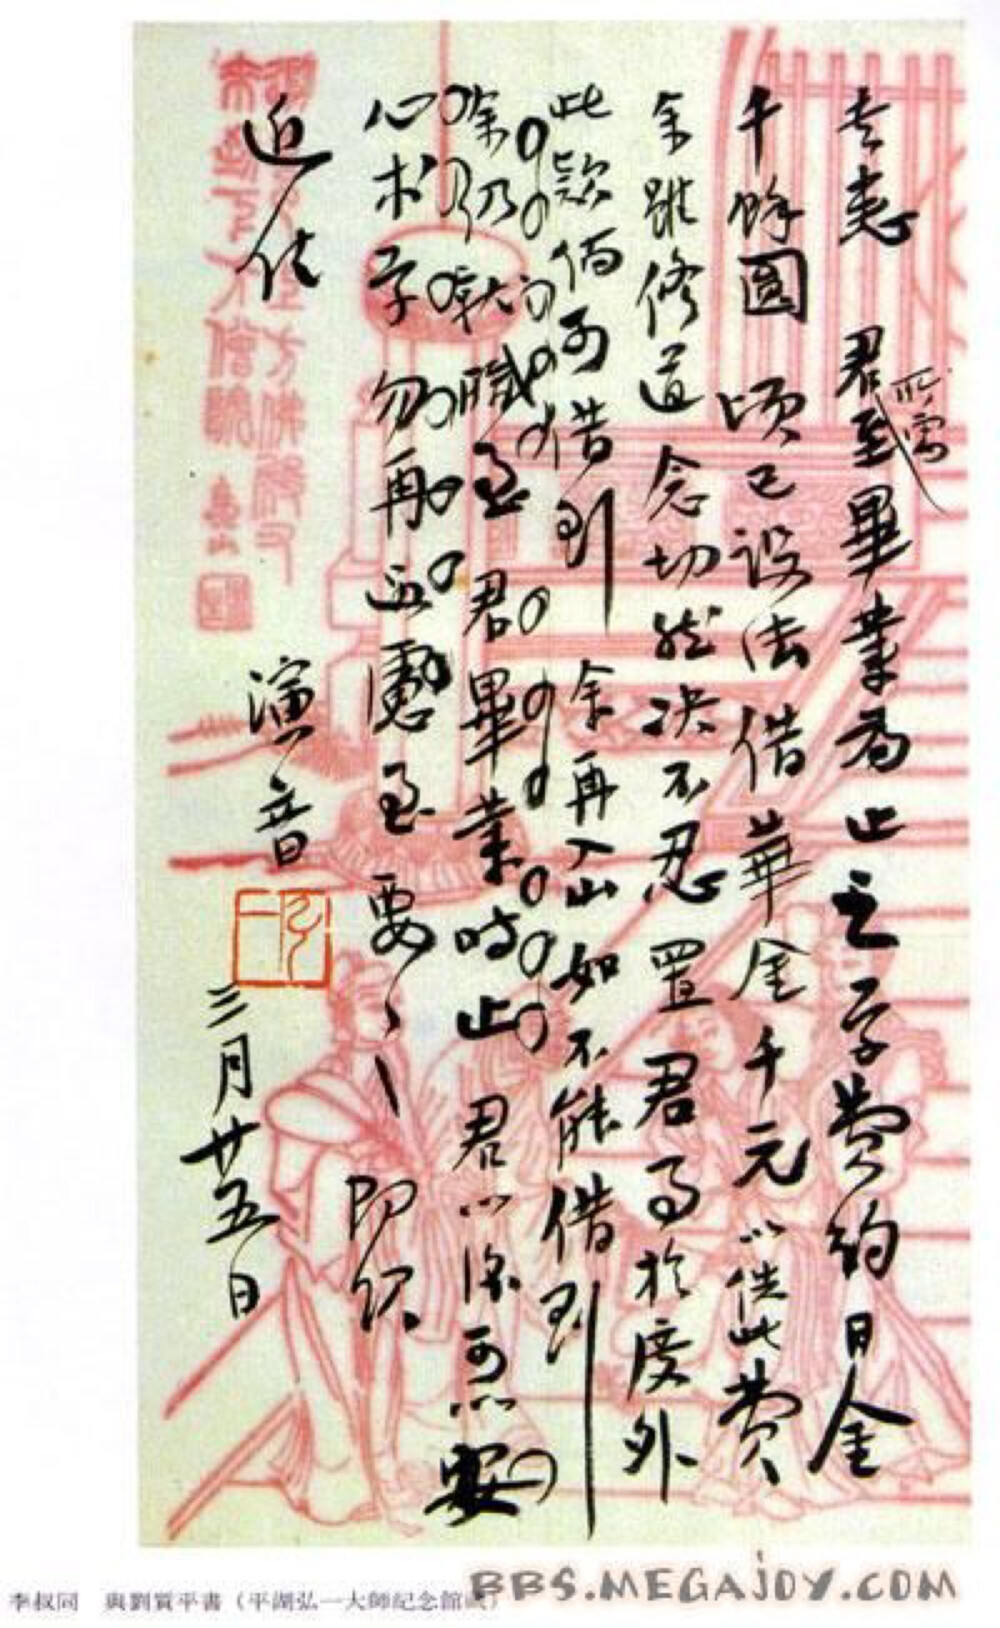 書悉 君所需至畢業為止之学費約日金
千餘圓 頃已設法借華金千元以供此費
余雖修道念切然決不忍置君事於度外
此款倘可借到 余再入山如不能借到
余仍就職至君畢業時止 君以後可以安
心求学勿再過慮至要、、 即頌
近佳
演音
三月廿五日
李叔同 與劉質平書（平湖弘一大師紀念館藏）
BBS.MEGAJOY.COM